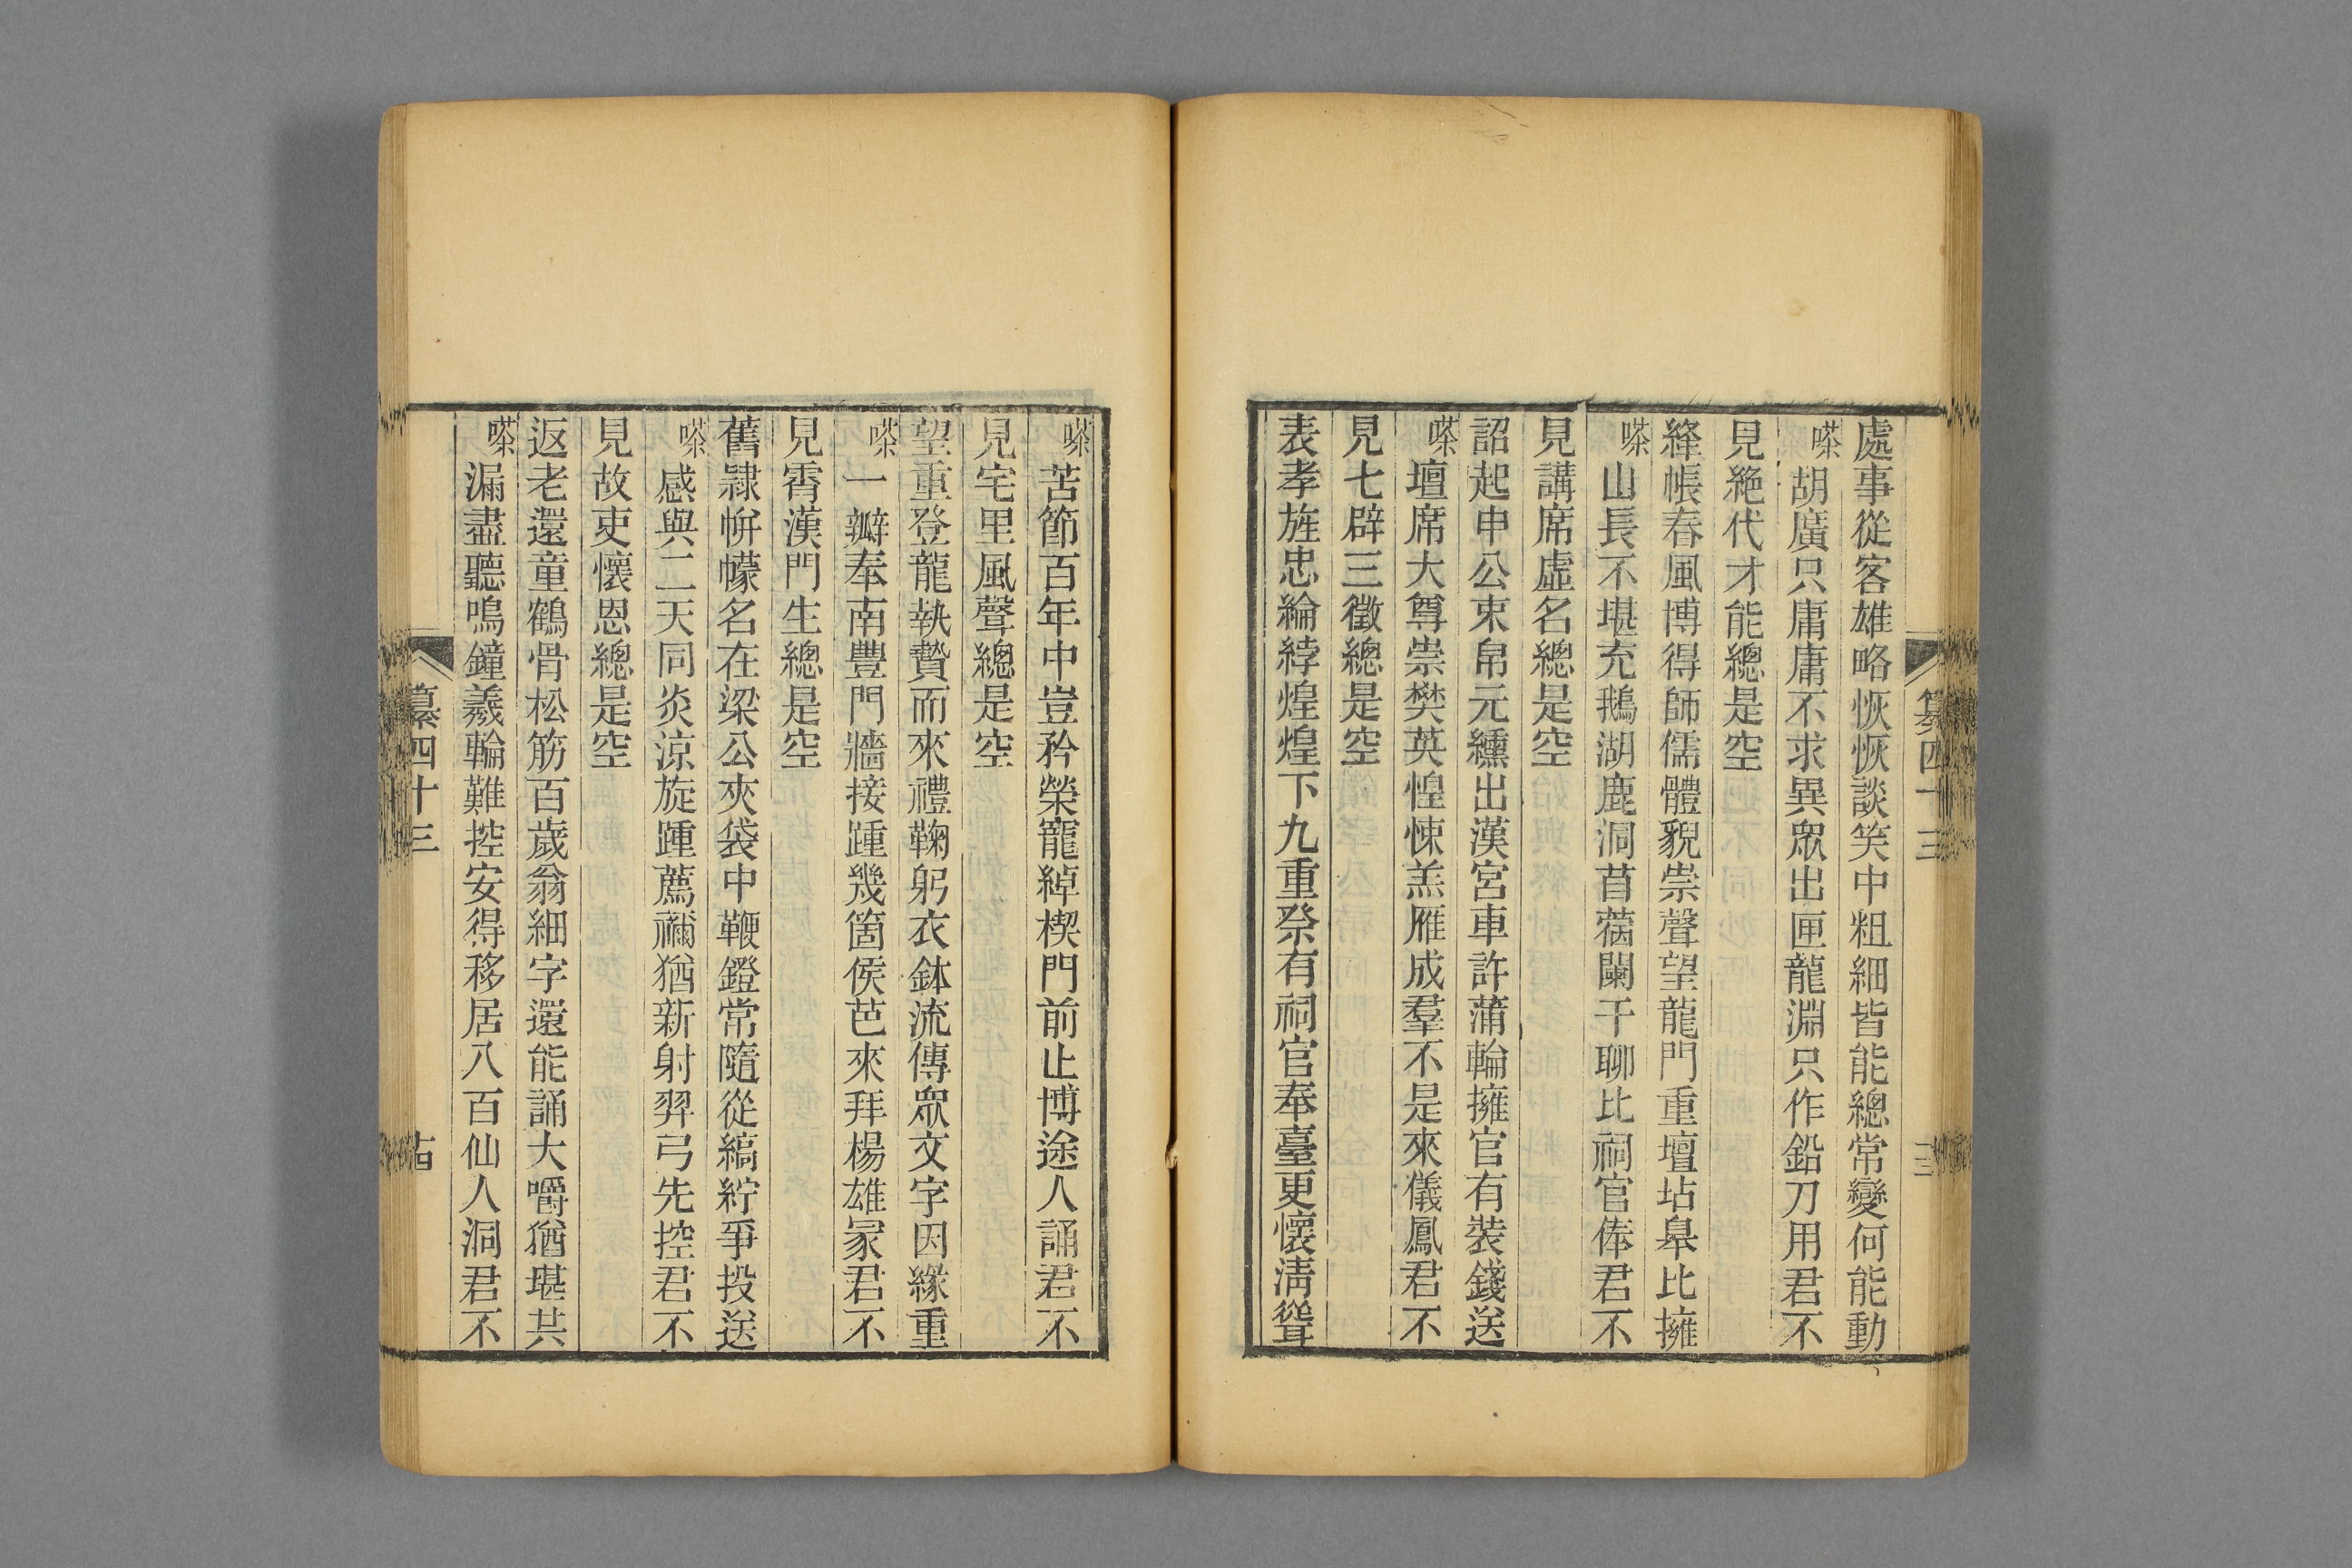 處事從客雄略恢恢談笑中粗細皆能總常變何能動
嗏胡廣只庸庸不求異眾出匣龍淵只作鉛刀用君不
見絶代才能總是空
絳帳春風博得師儒體貌崇聲望龍門重壇坫臯比擁
嗏山長不堪充鵝湖鹿洞苜蓿闌干聊比祠官俸君不
見講席虛名總是空
詔起申公束帛元纁出漢宮車許蒲輪擁官有裝錢送
嗏壇席大尊崇樊英惶悚羔雁成羣不是來儀鳳君不
見七辟三徵總是空
表孝旌忠綸綍煌煌下九重祭有祠官奉臺更懷清聳
纂四十三
十三
嗏苦節百年中豈矜榮寵綽楔門前止博途人誦君不
見宅里風聲總是空
望重登龍執贄而來禮鞠躬衣鉢流傳眾文字因緣重
嗏一瓣奉南豐門牆接踵幾箇侯芭來拜楊雄冡君不
見霄漢門生總是空
舊隸帡幪名在梁公夾袋中鞭鐙常隨從縞紵爭投送
嗏感與二天同炎涼旋踵薦禰猶新射羿弓先控君不
見故吏懷恩總是空
返老還童鶴骨松筋百歲翁細字還能誦大嚼猶堪共
嗏漏盡聽鳴鐘羲輪難控安得移居八百仙人洞君不
纂四十三
十四